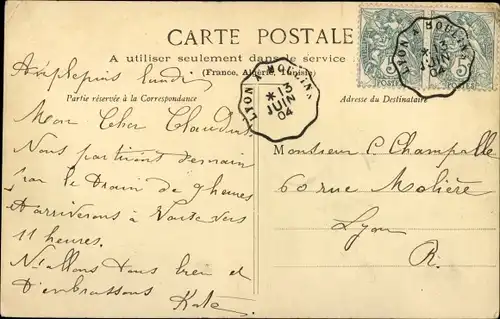 CARTE POSTALE
A utiliser seulement dans le service
(France, Algérie, Tunisie)
Partie réservée à la Correspondance
Adresse du Destinataire
LYON A
* 13
JUIN
04
LYON A
* 13
JUIN
04
5
5
Amplepuis lundi
Mon Cher
Nous partirons demain
par le Train de 9 heures
arriverons à vers
11 heures.
Ns allons tous bien et
t'embrassons Kate
Monsieur C Champalle
60 rue Molière
Lyon
R.